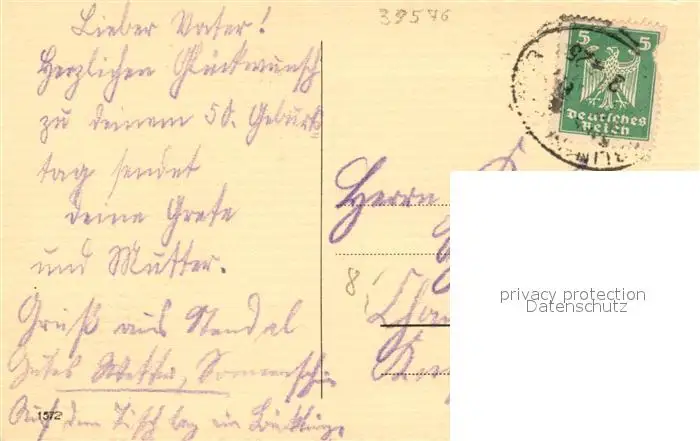 Lieber Vater!
Herzlichen Glückwunsch
zu deinem 50. Geburts
tag sendet
deine Grete
und Mutter.
Gruß aus Stendal
Gutes Wetter, Sonnenschein
Auf dem Tisch lag ein
1572
39576
5 5
Deutsches
Reich
Herrn
8
privacy protection
Datenschutz